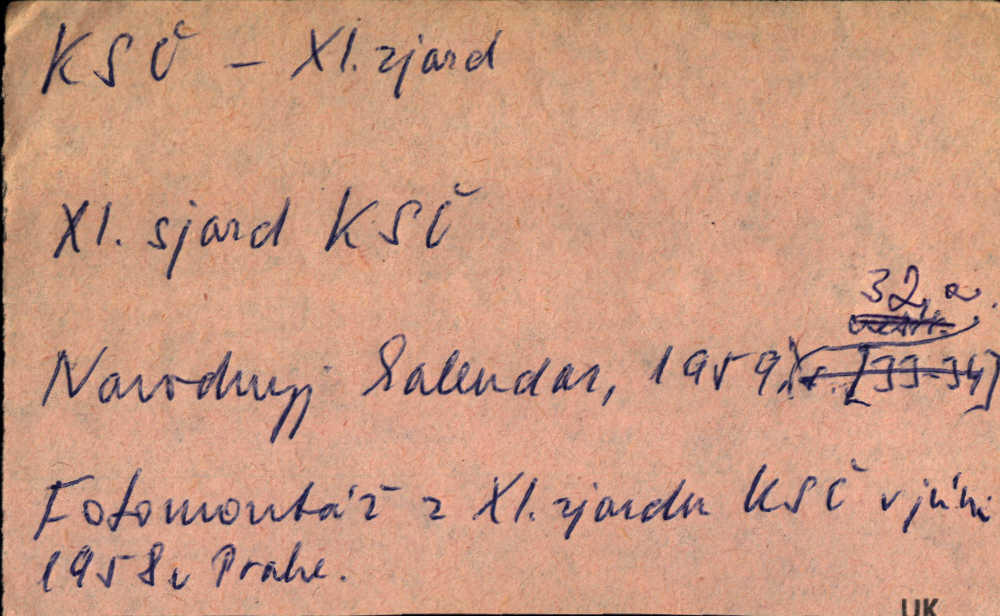 KSČ – XI. zjazd
XI. sjazd KSČ
32, a.
Narodnyj kalendar, 1959, s. [33-34]
Fotomontáž z XI. zjazdu KSČ v júni
1958 v Prahe.
UK